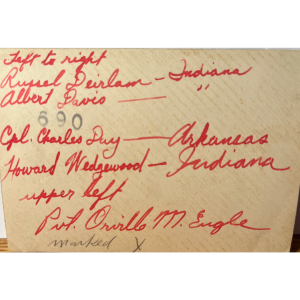 Left to right
Russel Deirlam - Indiana
Albert Davis — "
690
Cpl. Charles Duy — Arkansas
Howard Wedgewood - Indiana
upper left
Pvt. Orville M. Eugle
marked X